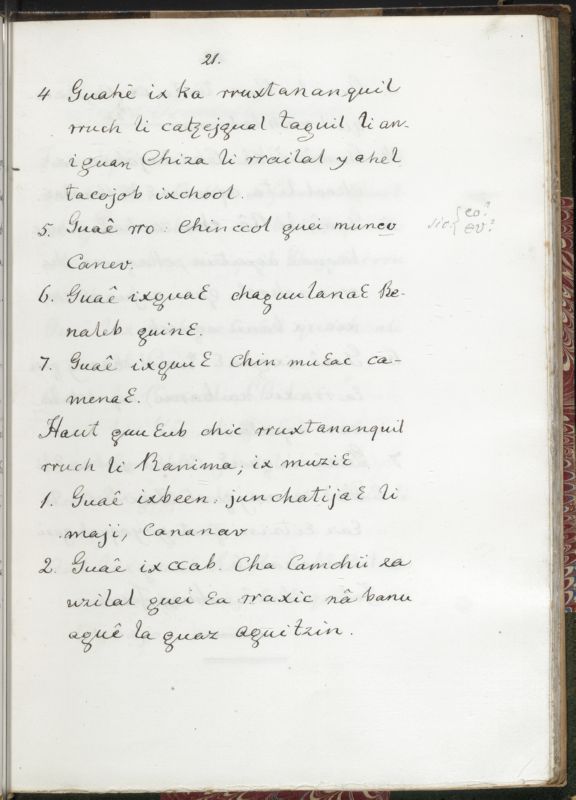 21.
4 Guahê ix ka rruxtananquil
rruch li catzejqual taguil li an-
iguan Chiza li rrailal y ahel
tacojob ixchool.
5. Guaê rro: Chinccol quei munco
Canev.
sic { eo?
ev?
6. Guaê ixguaƐ chaguulanaƐ Re-
naleb guinƐ.
7. Guaê ixguuƐ Chin muƐac ca-
menaƐ.
Haut guuƐub chic rruxtananquil
rruch li Ranima; ix muziƐ
1. Guaê ixbeen: jun chatijaƐ li
maji, Cananav
2. Guaê ixccab. Cha Camchii za
uzilal quei Ɛa rraxic nâ banu
aguê la guaz aguitzin.